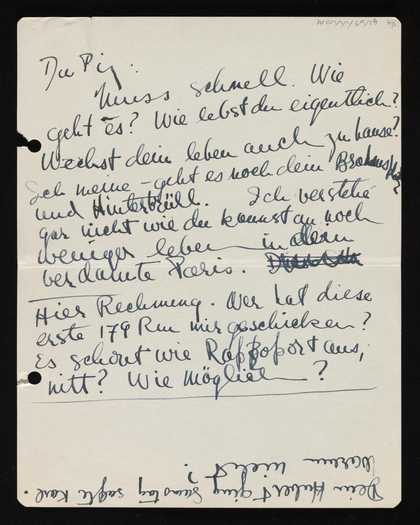 Du Pig:
Muss schnell. Wie
geht es? Wie lebst du eigentlich?
Wechst dein leben auch zu hause?
Ich meine – geht es noch dein
und Hinterbrühl. Ich verstehe
gar nicht wie du kannst an noch
weniger leben in dein
verdamte Paris.
Hier Rechnung. Wer hat diese
erste 179 Rm mir geschicken?
Es schört wie Rappoport aus,
nitt? Wie möglich?
Dein Hubert ging Samstag sagte Karl.
Warum nicht?